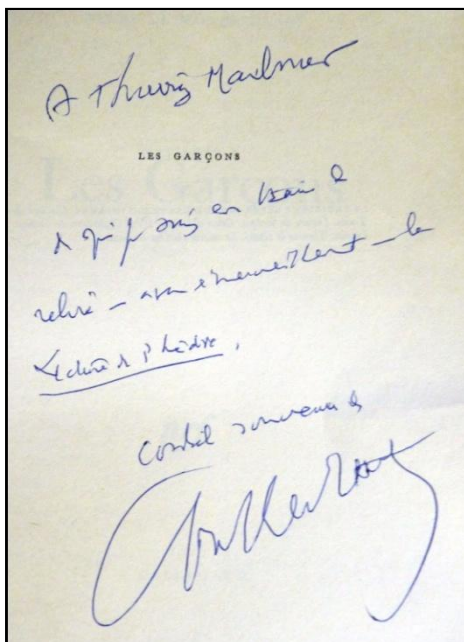 A Thierry Maulnier
LES GARÇONS
de qui je suis en train de
relire – avec émerveillement – la
Lecture de Phèdre.
Cordial souvenir de
Montherlant